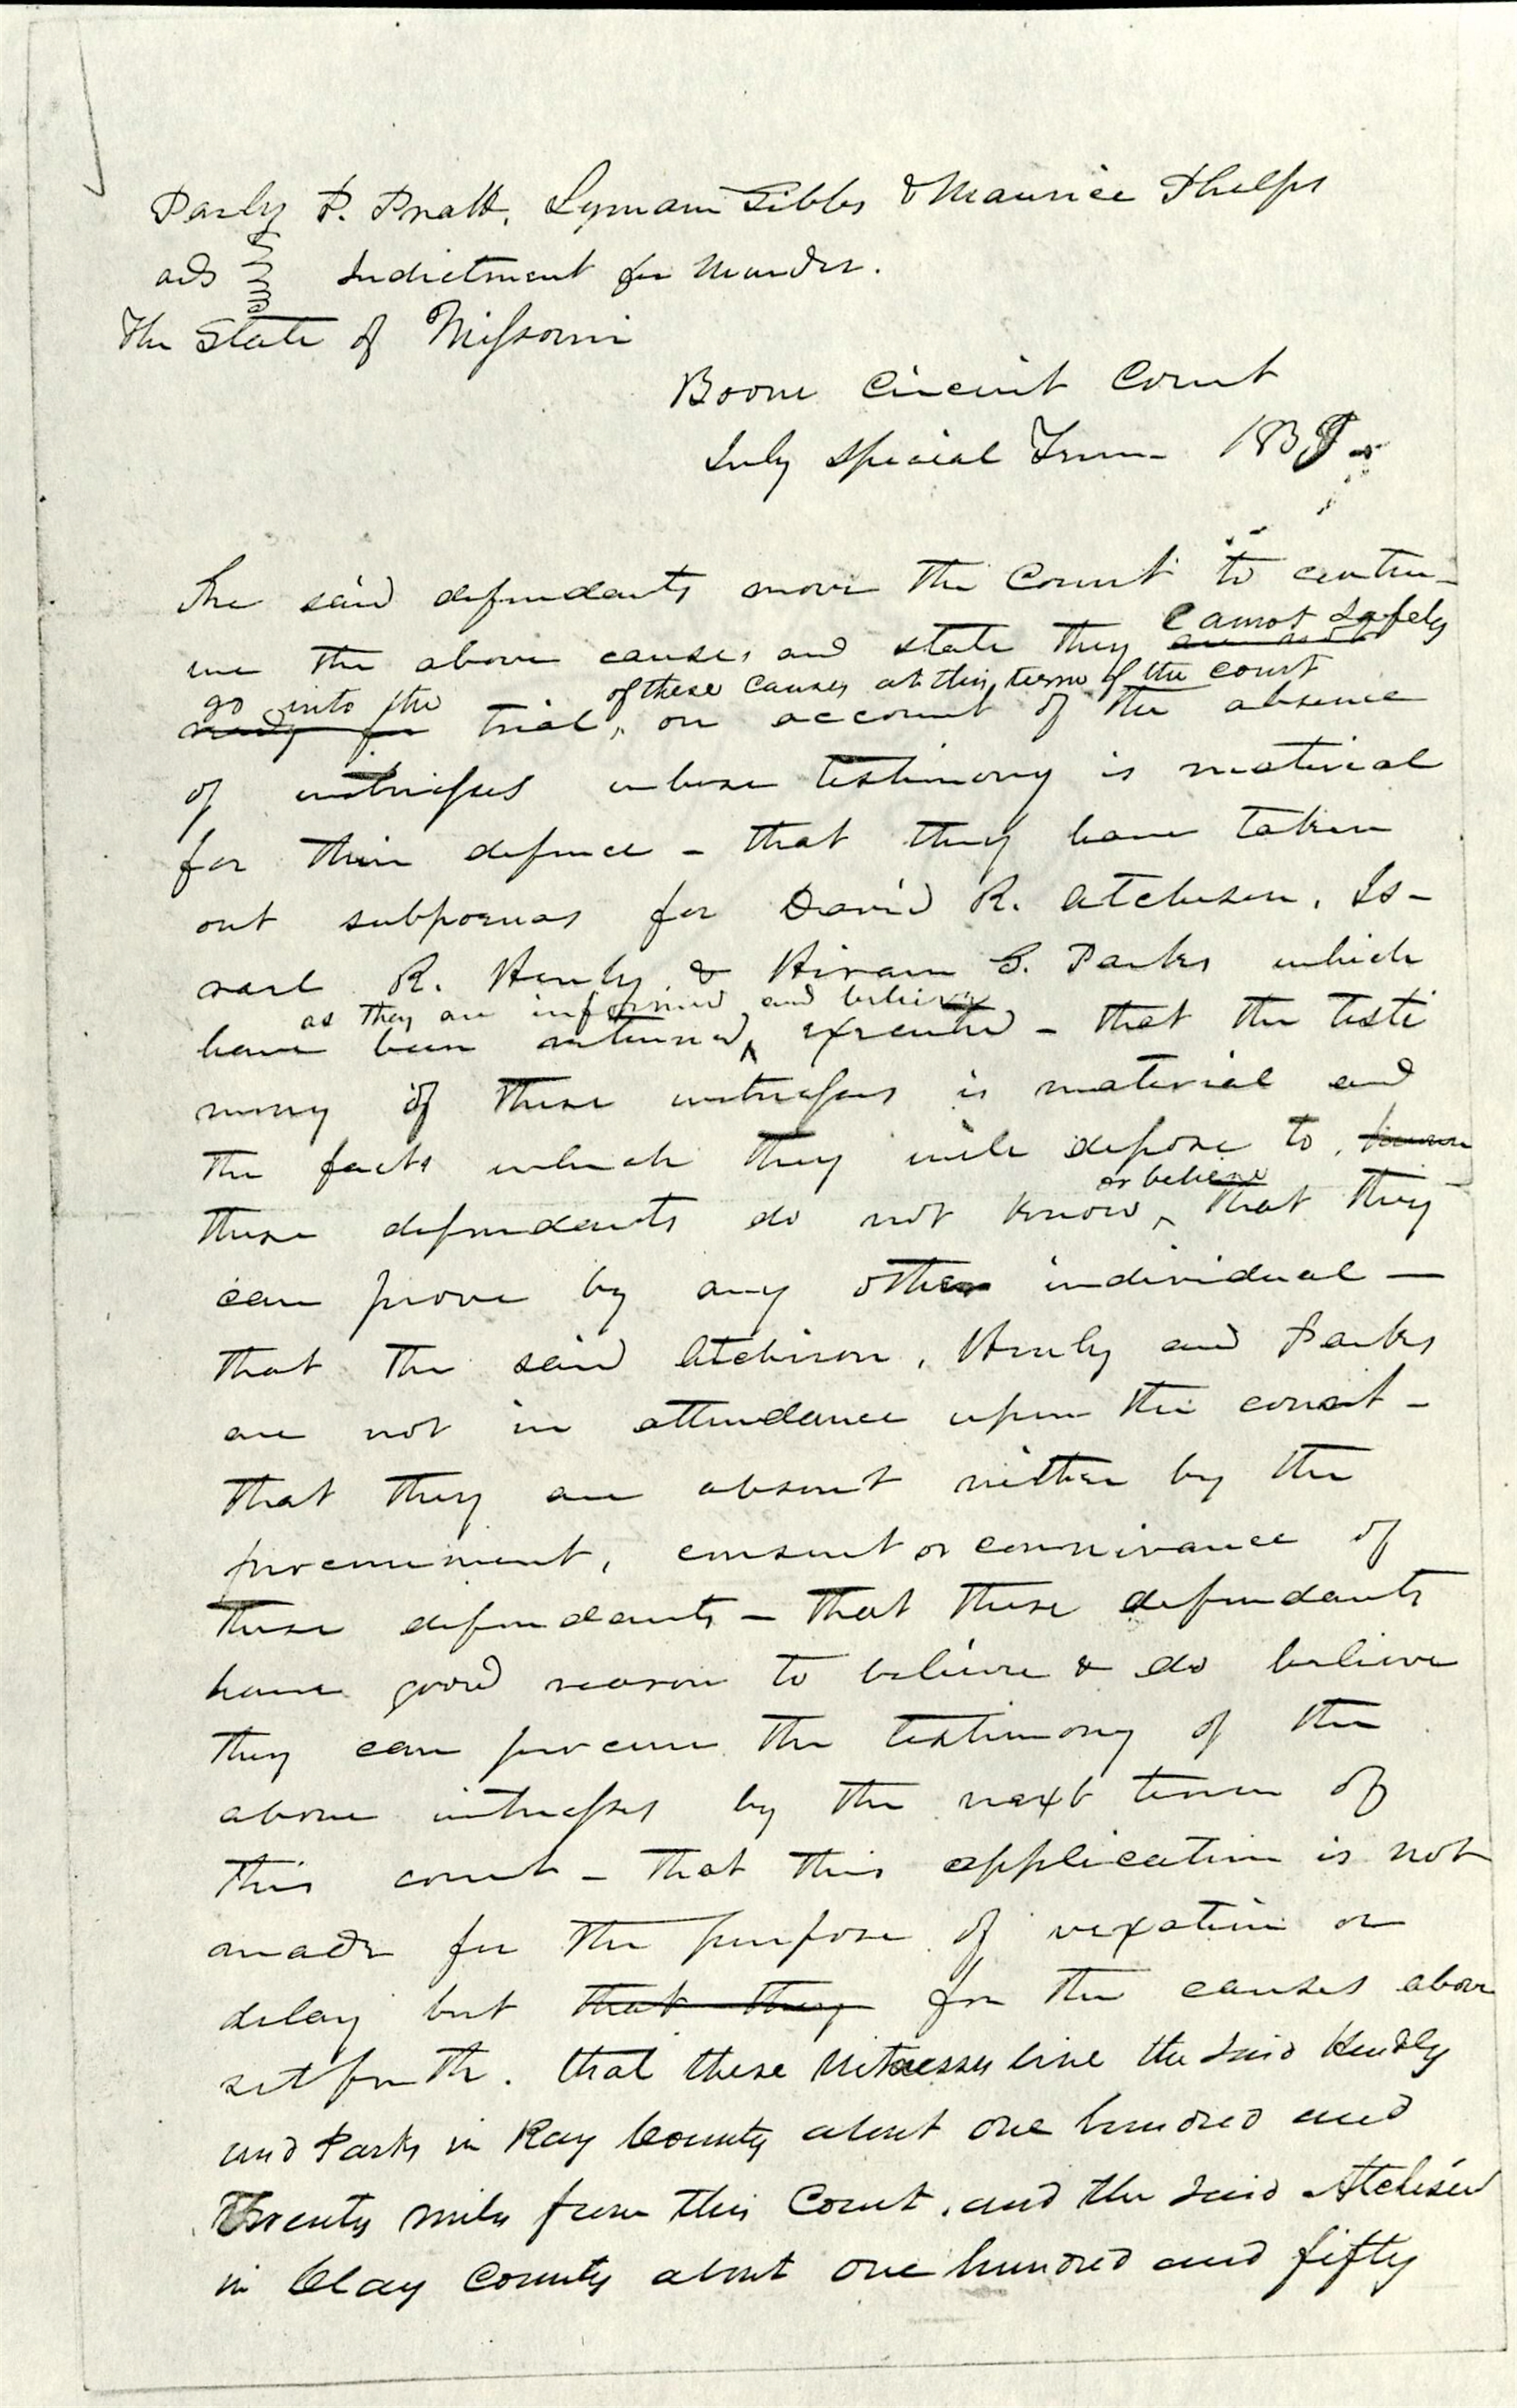 Parly P. Pratt, Lyman Gibbs & Maurice Phelps
ads Indictment for Murder.
The State of Missouri
Boone Circuit Court
July Special Term 1839
The said defendants move the Court to contin-
cannot safely
ue the above causes and state they are not
go into the of these causes at this term of the court
ready for trial, on account of the absence
of witnesses whose testimony is material
for their defence - that they have taken
out subpoenas for David R. Atchison, Is-
rael R. Henly & Hiram G. Parks which
as they are informed and believe
have been returned executed - that the testi
mony of these witnesses is material and
the facts which they will depose to,
or believe
these defendants do not know that they
can prove by any other individual —
that the said Atchison, Henly and Parks
are not in attendance upon the court -
that they are absent neither by the
procurement, consent or connivance of
these defendants - that these defendants
have good reason to believe & do believe
they can procure the testimony of the
above witnesses by the next term of
this court - that this application is not
made for the purpose of vexation or
delay but that they for the causes above
set forth. that these witnesses live the said Hendly
and Parks in Ray County about one hundred and
Twenty miles from this Court, and the said Atchison
in Clay County about one hundred and fifty